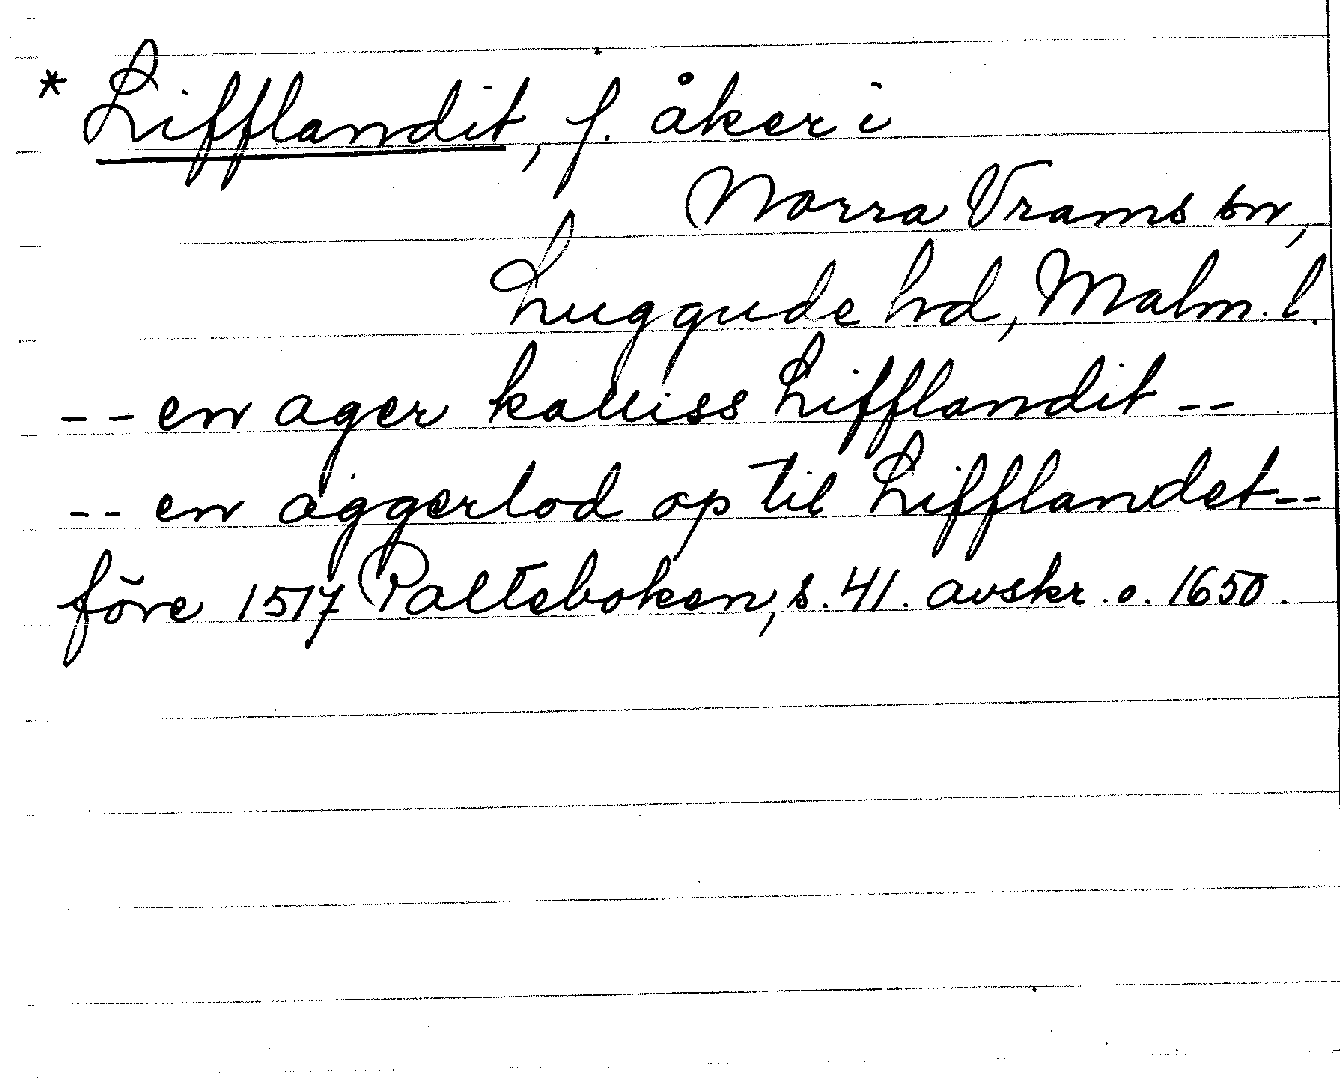 * Lifflandit, f. åker i
Norra Vrams sn,
Luggude hd, Malm. l.
-- en ager kalliss Lifflandit --
-- en aggerlod op til Lifflandet --
före 1517 Palteboken, s. 41. avskr. o. 1650.